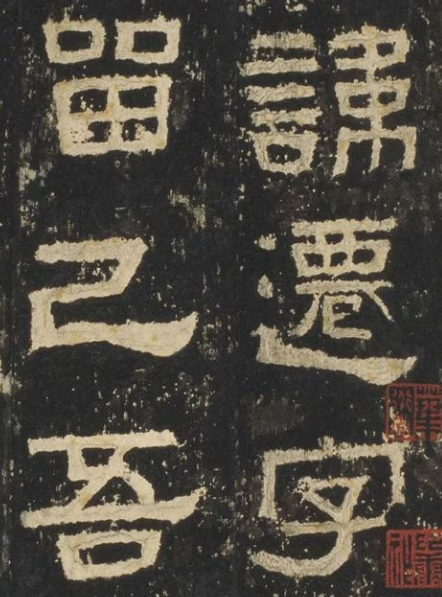 諱遷字
留己吾